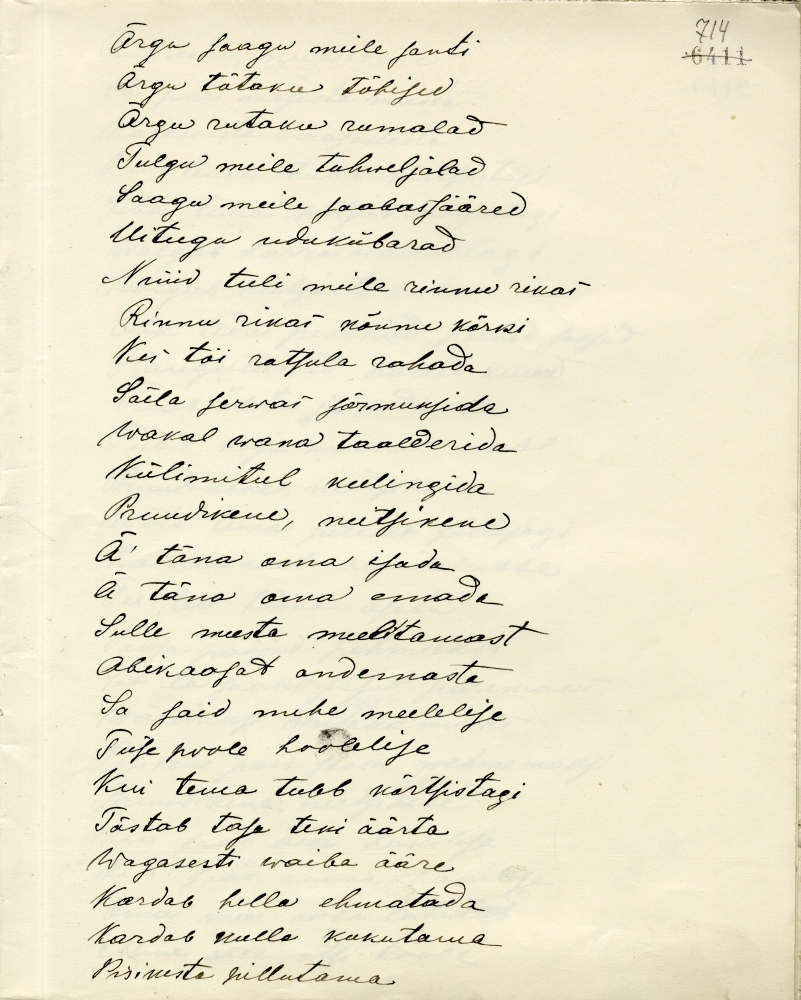 714
6411
Ärgu saagu meile santi
Ärgu tõtaku tõbised
Ärgu rutaku rumalad
Tulgu meile tuhweljalad
Saagu meile saabassääred
Uitugu udukübarad
Nüüd tuli meile rinnu rikas
Rinnu rikas nõnnu kõrki
Kes tõi ratsula rahada
Säila serwas sõrmuksida
Wakal wana taalderida
Külimitul keelingida
Pruudikene, neitsikene
Ä' täna oma isada
Ä täna oma emada
Sulle meesta meelitamast
Abikaasat andemasta
Sa said mehe meelelise
Teise poole hoolelise
Kui tema tuleb kõrtsistagi
Tõstab tasa teki äärta
Wagasesti waiba ääre
Kardab hella ehmatada
Kardab kulla kukutama
Pisikesta pillutama